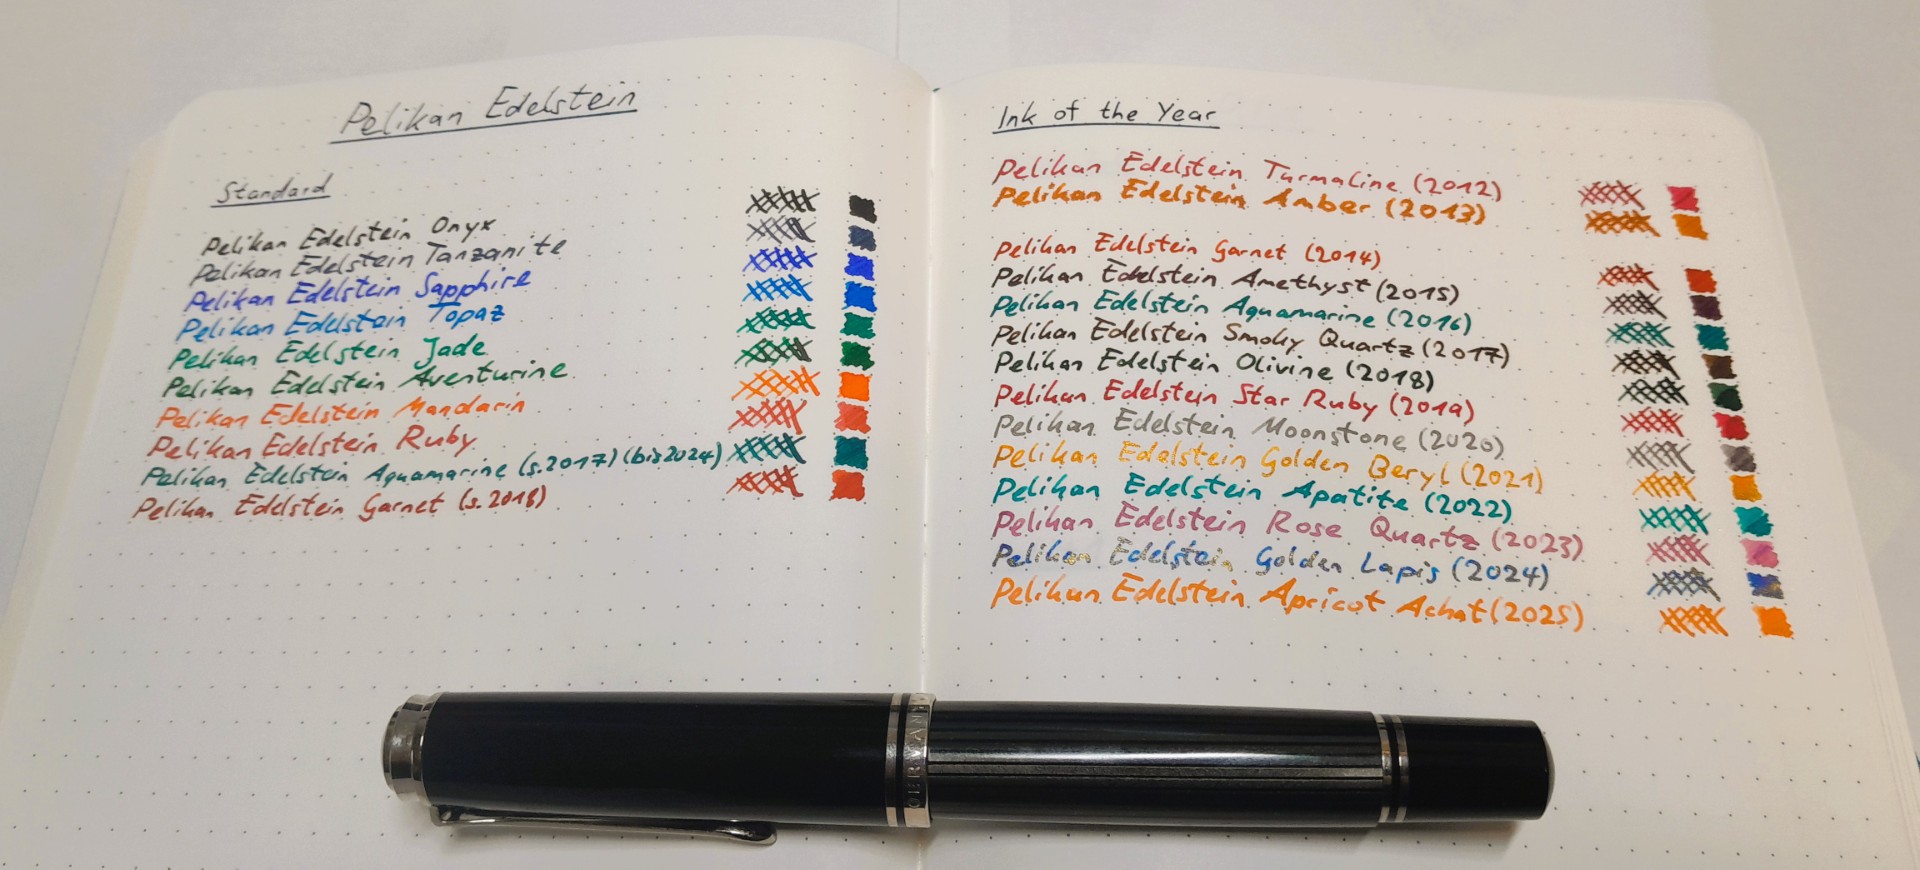 Pelikan Edelstein
Standard
Pelikan Edelstein Onyx
Pelikan Edelstein Tanzanite
Pelikan Edelstein Sapphire
Pelikan Edelstein Topaz
Pelikan Edelstein Jade
Pelikan Edelstein Aventurine
Pelikan Edelstein Mandarin
Pelikan Edelstein Ruby
Pelikan Edelstein Aquamarine (s.2017) (bis 2024)
Pelikan Edelstein Garnet (s.2018)
Ink of the Year
Pelikan Edelstein Turmaline (2012)
Pelikan Edelstein Amber (2013)
Pelikan Edelstein Garnet (2014)
Pelikan Edelstein Amethyst (2015)
Pelikan Edelstein Aquamarine (2016)
Pelikan Edelstein Smoky Quartz (2017)
Pelikan Edelstein Olivine (2018)
Pelikan Edelstein Star Ruby (2019)
Pelikan Edelstein Moonstone (2020)
Pelikan Edelstein Golden Beryl (2021)
Pelikan Edelstein Apatite (2022)
Pelikan Edelstein Rose Quartz (2023)
Pelikan Edelstein Golden Lapis (2024)
Pelikan Edelstein Apricot Achat (2025)